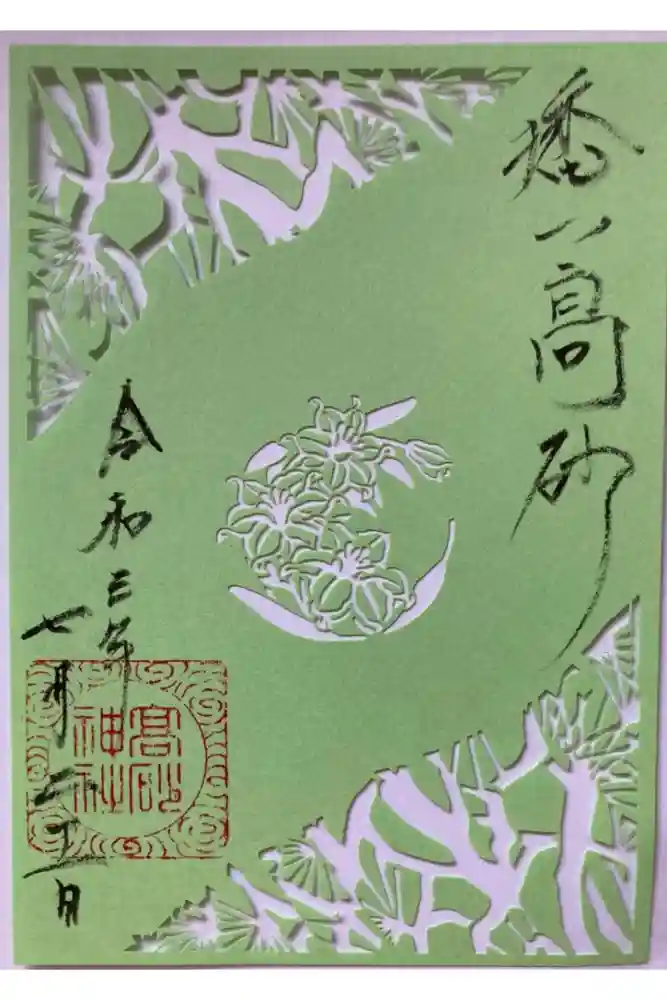 播州高砂
令和三年
七月二十五日
高砂
神社